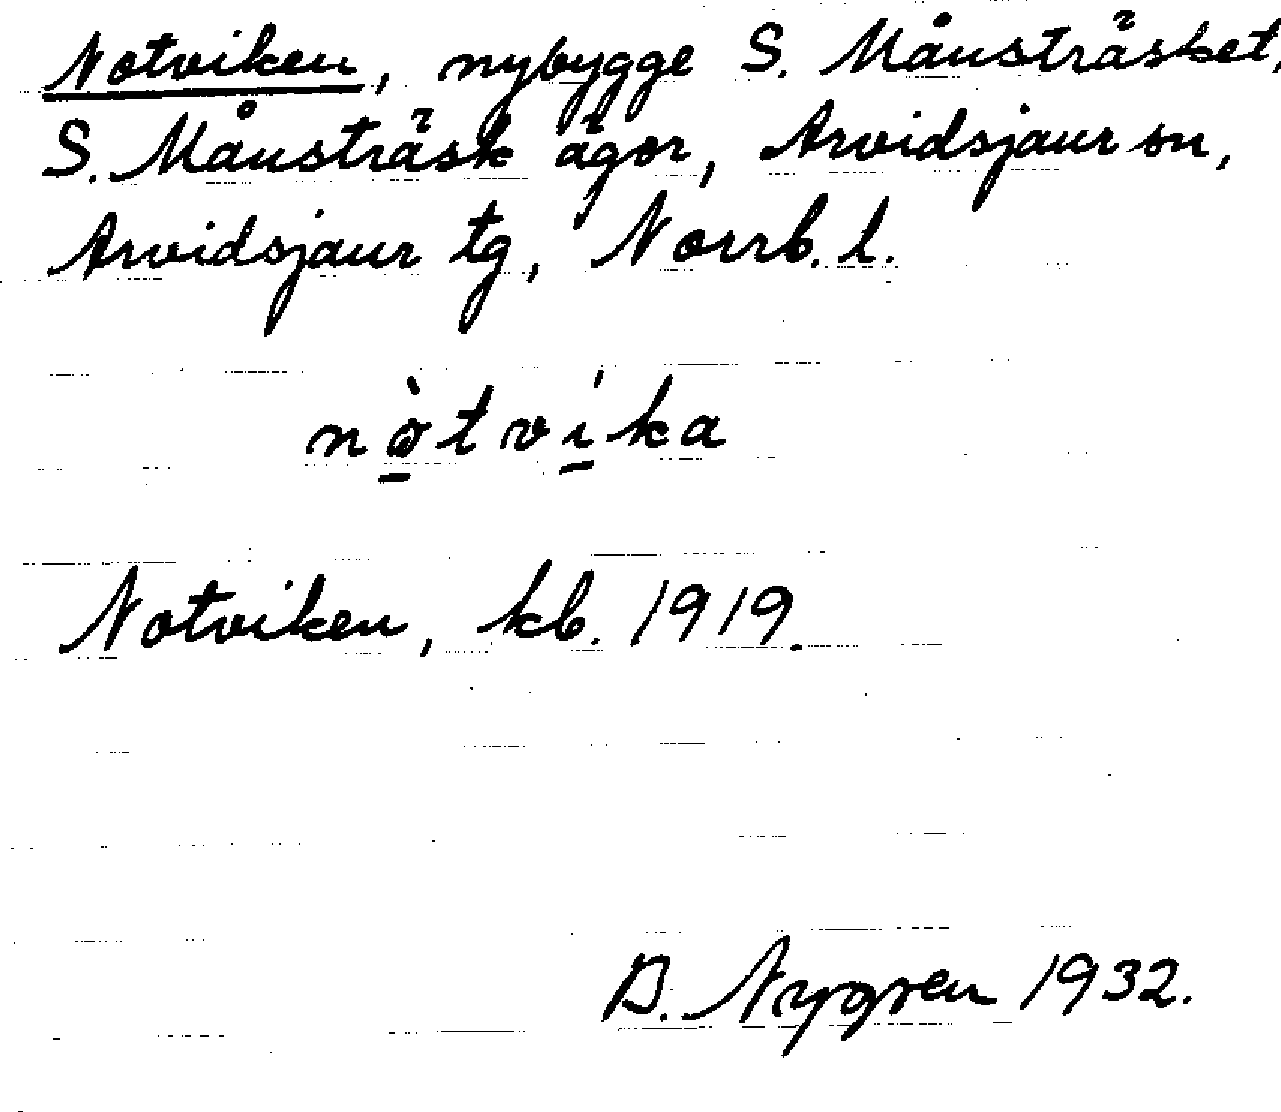 Notviken, nybygge S. Månsträsket,
S. Månsträsk ägor, Arvidsjaur sn,
Arvidsjaur tg, Norrb. l.
nò̱tví̱ka
Notviken, kb. 1919.
B. Nygren 1932.